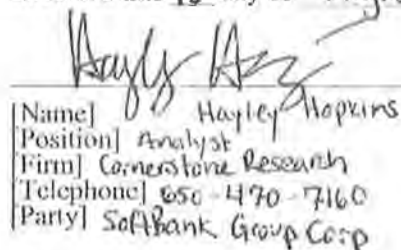 [Name] Hayley Hopkins
[Position] Analyst
[Firm] Cornerstone Research
[Telephone] 650-470-7160
[Party] SoftBank Group Corp